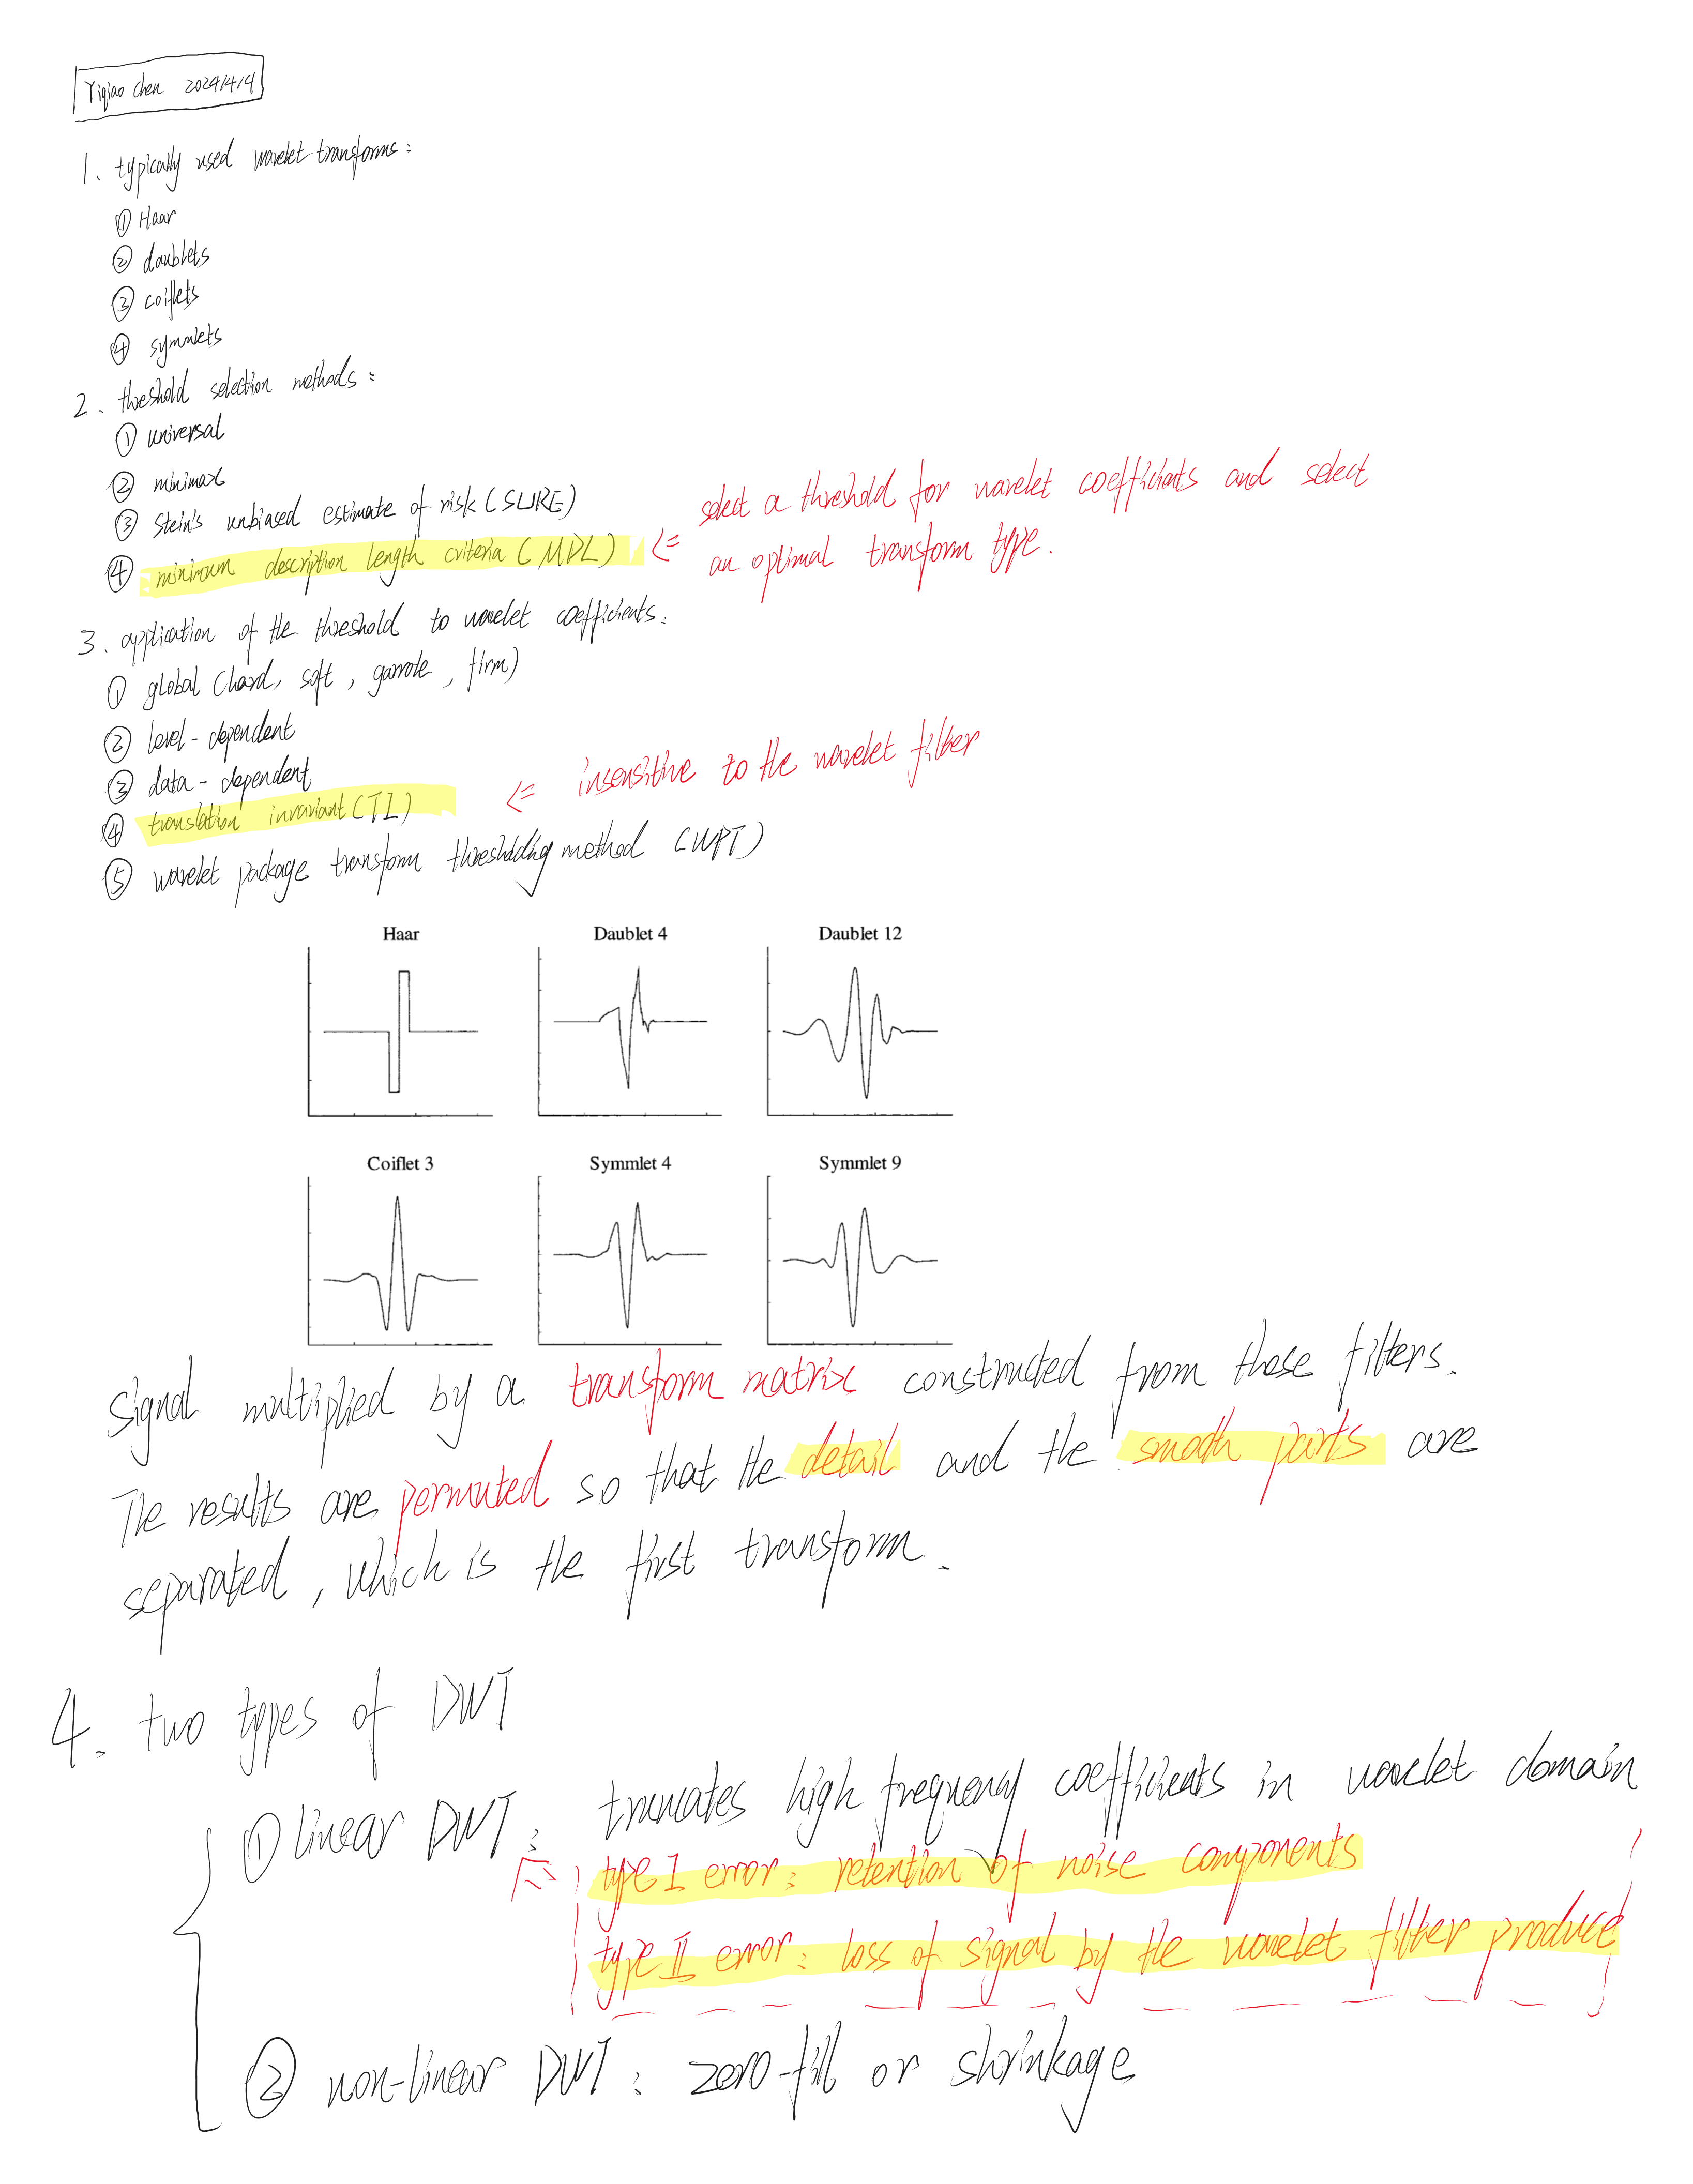 Yiqiao Chen 2024/4/4
1. typically used wavelet transforms:
① Haar
② daublets
③ coiflets
④ symmlets
2. threshold selection methods:
① universal
② minimax
③ Stein's unbiased estimate of risk (SURE)
④ minimum description length criteria (MDL) <= select a threshold for wavelet coefficients and select
an optimal transform type.
3. application of the threshold to wavelet coefficients.
① global (hard, soft, garrote, firm)
② level-dependent
③ data-dependent
④ translation invariant (TI) <= insensitive to the wavelet filter
⑤ wavelet package transform thresholding method (WPT)
Haar Daublet 4 Daublet 12
Coiflet 3 Symmlet 4 Symmlet 9
Signal multiplied by a transform matrix constructed from these filters.
The results are permuted so that the detail and the smooth parts are
separated, which is the first transform.
4. two types of DWT
① linear DWT: truncates high frequency coefficients in wavelet domain
type I error: retention of noise components
type II error: loss of signal by the wavelet filter produce
② non-linear DWT: zero-fill or shrinkage